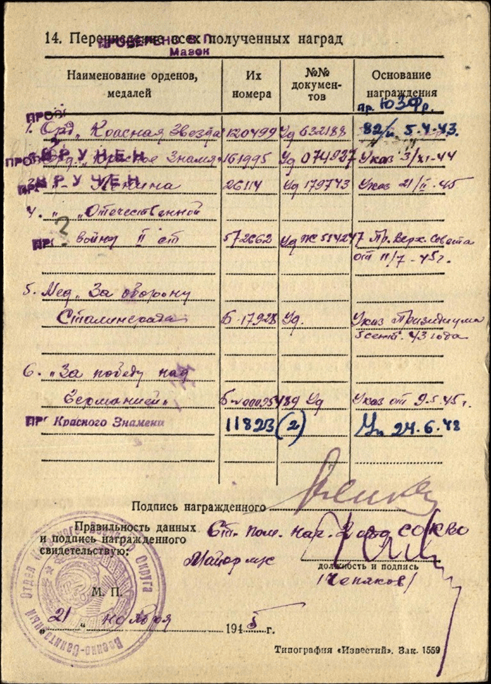 14. Перечисление всех полученных наград
ПРОВЕРЕНО В.П.
Мазок
Наименование орденов, медалей
Их номера
№№ документов
Основание награждения
пр. ЮЗФр.
1. Орд. Красная Звезда 120499 Уд 632188 82/н 5.4.43.
ВРУЧЕН Красное Знамя 161995 Уд 074937 Указ 3/XI-44
ВРУЧЕН Ленина 26114 Уд 179743 Указ 21/II-45
4. " „Отечественной
войны II ст 572662 Уд 514247 Пр. Верх. Совета
от 11/7-45г.
5. Мед. „За оборону
Сталинграда Б-17928 Уд. Указ Президиума
5 сент. 43 года
6. „За победу над
Германией" Уд Указ от 9.5.45г.
Красного Знамени 11823 (2) Ук 24.6.48
Подпись награжденного
Правильность данных
и подпись награжденного
свидетельствую:
Ст. пом. нач. 2 отд
Майор м/с
должность и подпись
М. П.
21 „ ноября 1945 г.
Типография «Известий». Зак. 1559